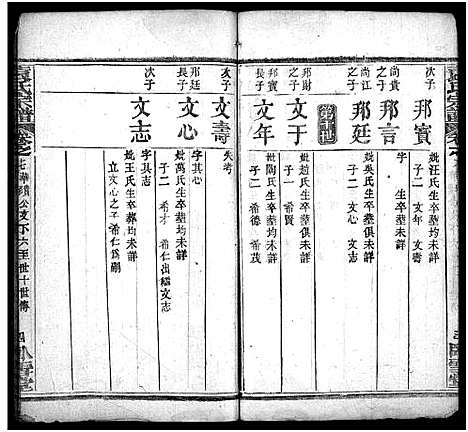 尚貴
之子
邦賓
妣汪氏生卒塟均未詳
子二 文年 文壽
次子
邦言
尚江
之子
邦廷
妣吳氏生卒塟俱未詳
子二 文心 文志
邦財
之子
文于
妣趙氏生卒塟俱未詳
子一 希賢
邦賓
長子
文年
妣陶氏生卒塟均未詳
子二 希德 希茂
次子
文壽
失考
邦廷
長子
文心
字其心
妣萬氏生卒塟均未詳
子二 希才 希仁出繼文志
次子
文志
字其志
妣王氏生卒塟均未詳
立文心之子希仁爲嗣
氏宗譜
卷之七 華嶺公支下六至世十世傳